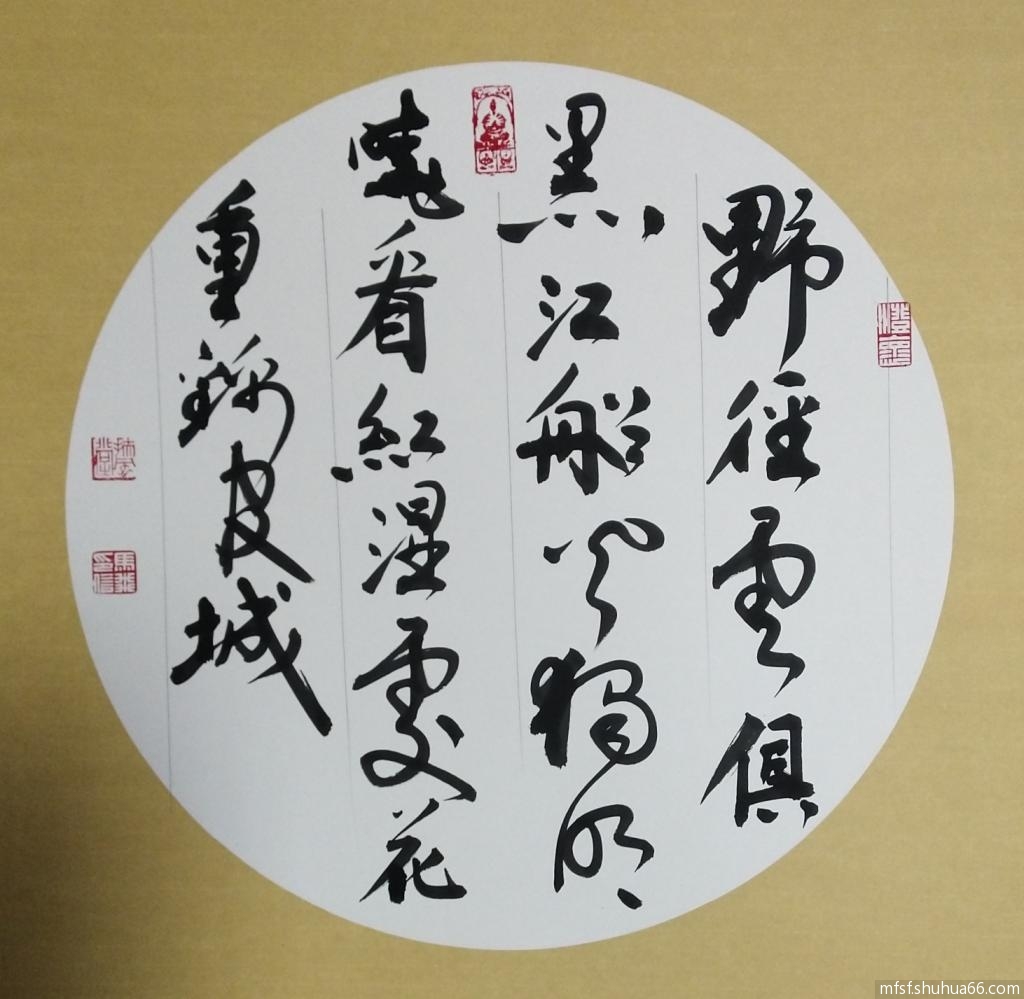 野徑雲俱
黑江船火獨明
曉看紅湿處花
重錦皮城
mfsf.shuhua66.com